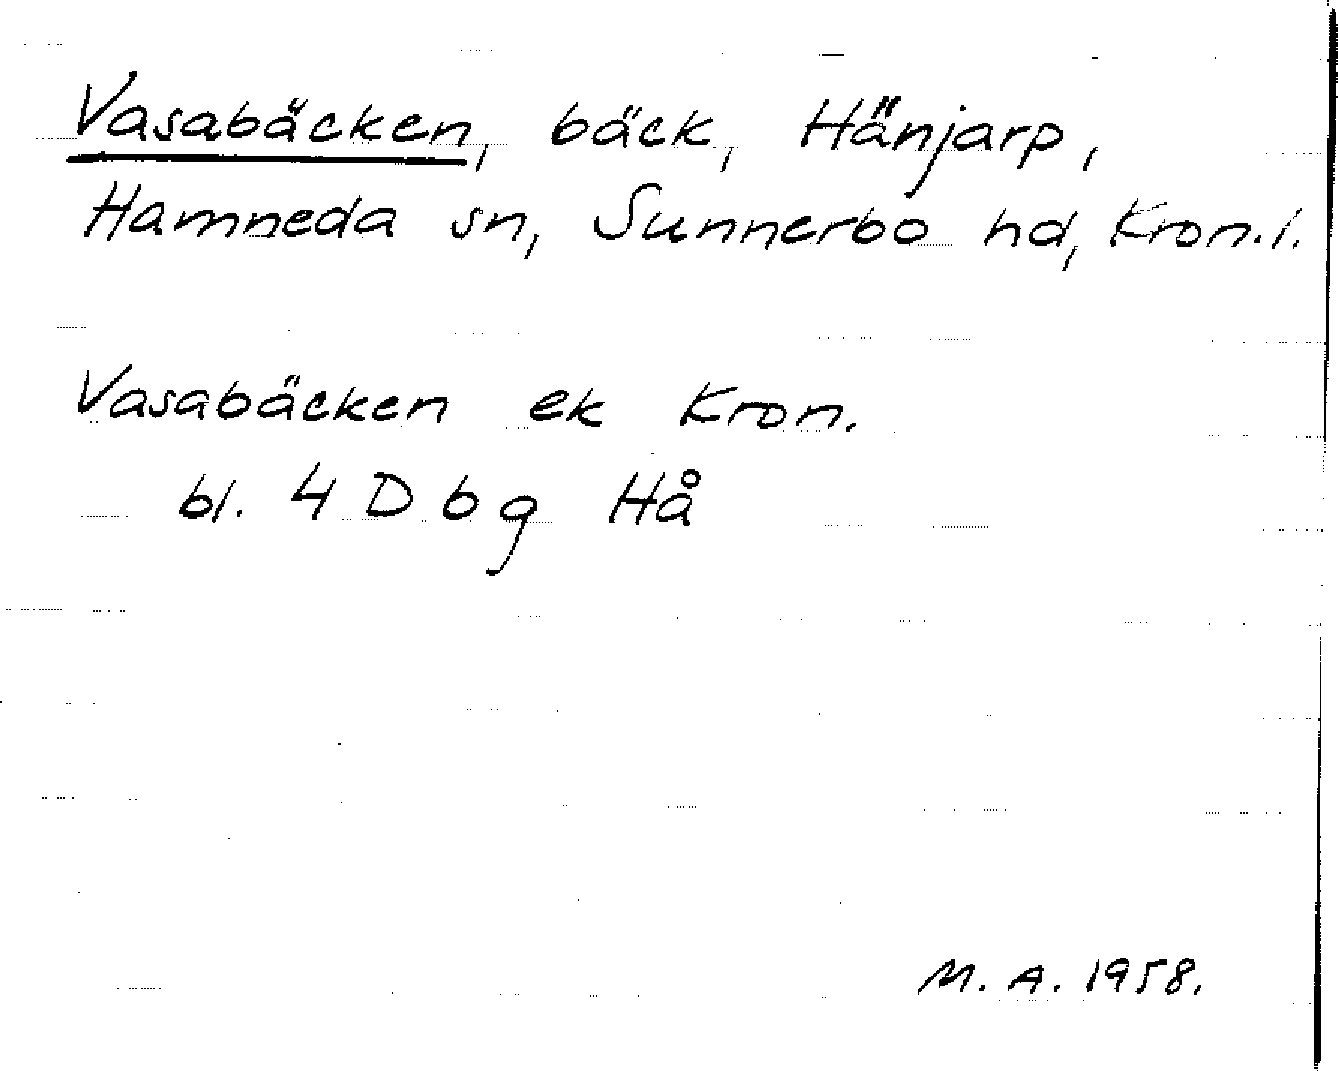 Vasabäcken, bäck, Hänjarp,
Hamneda sn, Sunnerbo hd, Kron.l.
Vasabäcken ek Kron.
bl. 4 D b g Hå
M. A. 1958.